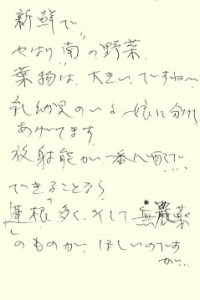 新鮮で
やはり"南"の野菜
葉物は、大きいですね〜
乳幼児のいる娘に分けて
あげてます
放射能が一番心配で…
できることなら
"蓮根"多く、そして無農薬
のものが、ほしいのです
が…